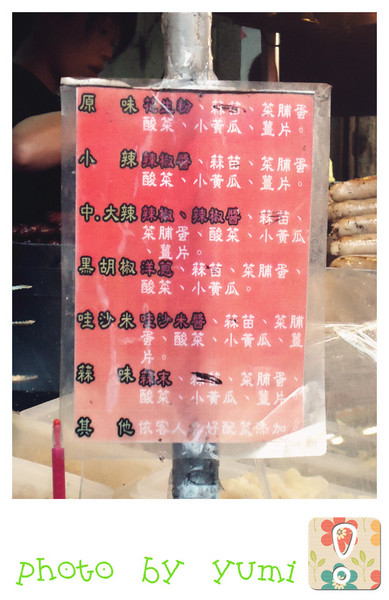 原味 花生粉、蒜苗、菜脯蛋
酸菜、小黃瓜、薑片。
小辣 辣椒醬、蒜苗、菜脯蛋
酸菜、小黃瓜、薑片。
中.大辣 辣椒、辣椒醬、蒜苗、
菜脯蛋、酸菜、小黃瓜
、薑片。
黑胡椒 洋蔥、蒜苗、菜脯蛋、
酸菜、小黃瓜。
哇沙米 哇沙米醬、蒜苗、菜脯
蛋、酸菜、小黃瓜、薑
片。
蒜味 蒜末、蒜苗、菜脯蛋、
酸菜、小黃瓜、薑片。
其他 依客人喜好配菜添加。
photo by yumi